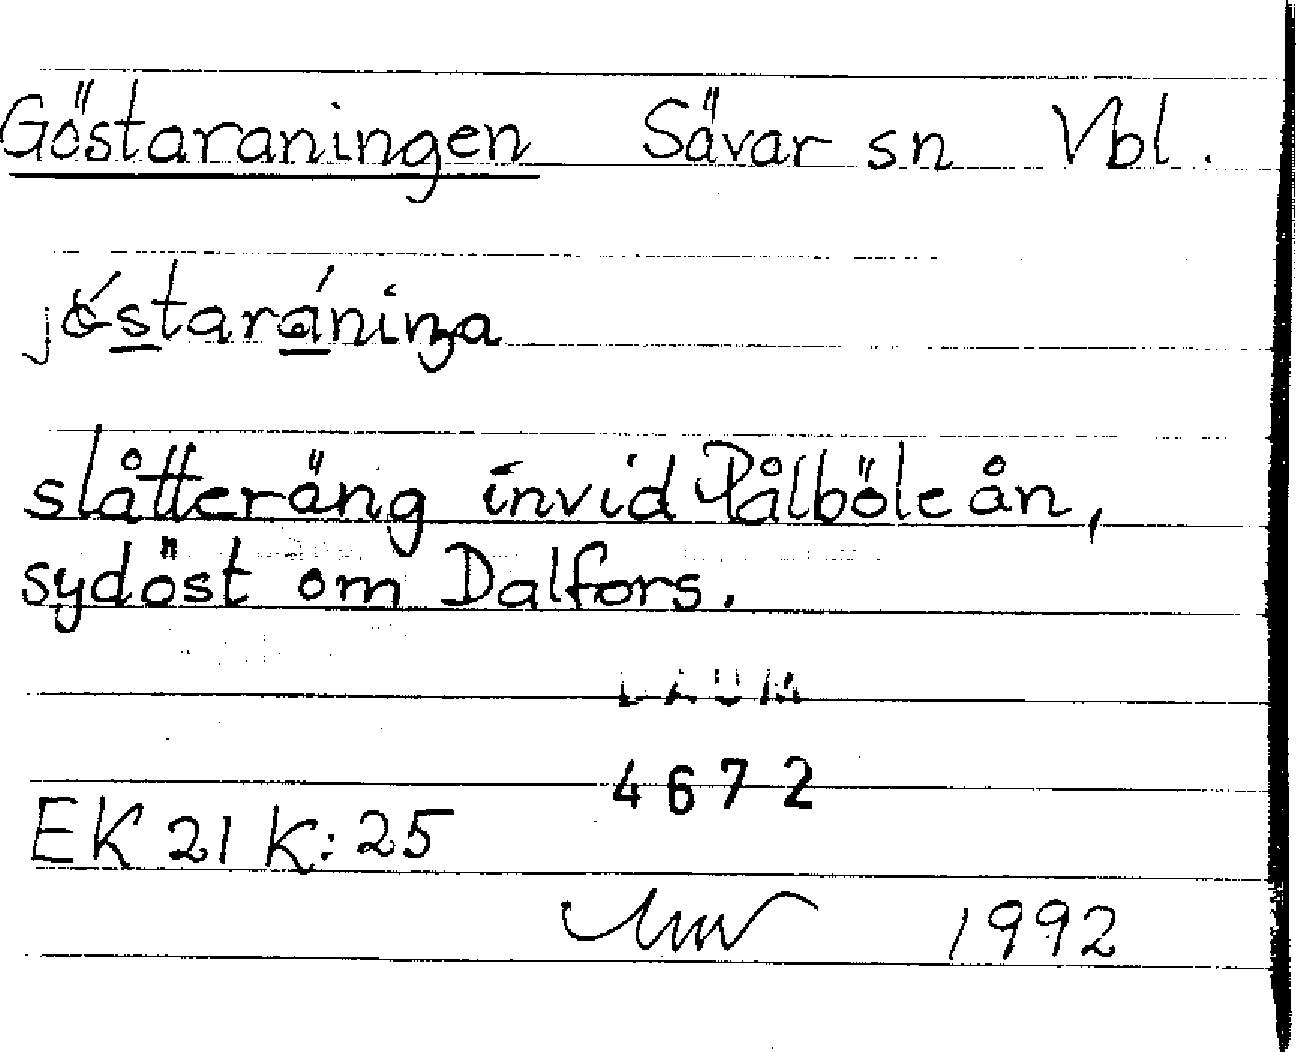 Göstaraningen Sävar sn Vbl.
slåtteräng invid Pålböleån,
sydöst om Dalfors.
DAUM
4672
EK 21 K:25
1992